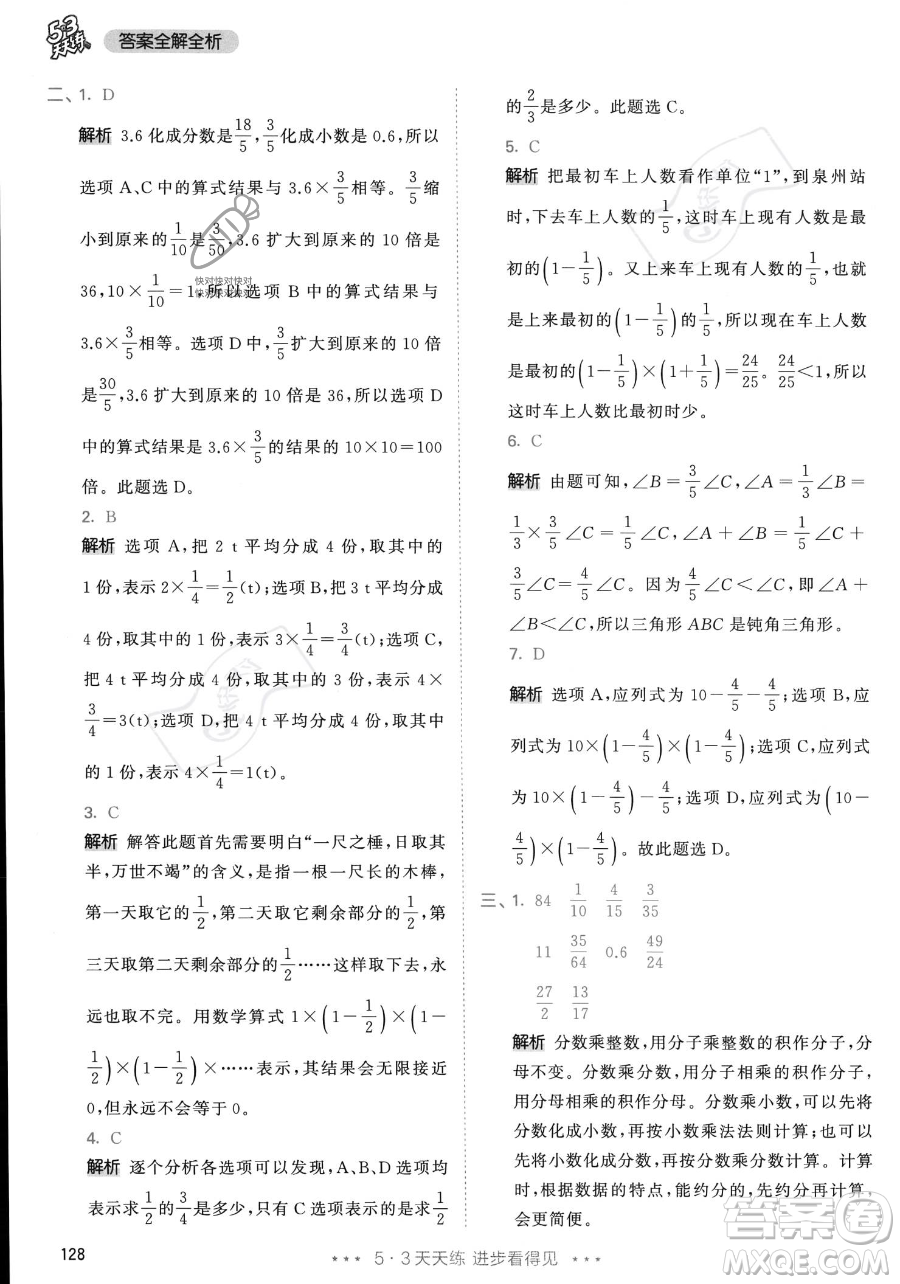 5·3
天天练
答案全解全析
二、1. D
解析 3.6 化成分数是18/5,3/5化成小数是 0.6,所以
选项 A、C 中的算式结果与 3.6×3/5相等。3/5缩
小到原来的1/10是3/50,3.6 扩大到原来的 10 倍是
36,10×1/10=1,所以选项 B 中的算式结果与
3.6×3/5相等。选项 D 中,3/5扩大到原来的 10 倍
是30/5,3.6 扩大到原来的 10 倍是 36,所以选项 D
中的算式结果是 3.6×3/5的 10×10=100
倍。此题选 D。
2. B
解析 选项 A,把 2 t 平均分成 4 份,取其中的
1 份,表示 2×1/4=1/2(t);选项 B,把 3 t 平均分成
4 份,取其中的 1 份,表示 3×1/4=3/4(t);选项 C,
把 4 t 平均分成 4 份,取其中的 3 份,表示 4×
3/4=3(t);选项 D,把 4 t 平均分成 4 份,取其中
的 1 份,表示 4×1/4=1(t)。
3. C
解析 解答此题首先需要明白“一尺之棰,日取其
半,万世不竭”的含义,是指一根一尺长的木棒,
第一天取它的1/2,第二天取它剩余部分的1/2,第
三天取第二天剩余部分的1/2……这样取下去,永
远也取不完。用数学算式 1×(1-1/2)×(1-
1/2)×(1-1/2)×……表示,结果会无限接近
0,但永远不会等于 0。
4. C
解析 逐个分析各选项可以发现,A、B、D 选项都
表示求1/2的3/4是多少,只有 C 选项表示的是求1/2
的2/3是多少。此题选 C。
5. C
解析 把最初车上人数看作单位“1”,到泉州站
时,下去车上人数的1/5,这时车上现有人数是最
初的(1-1/5)。又上来车上现有人数的1/5,也就
是上来最初的(1-1/5)的1/5,所以现在车上人数
是最初的(1-1/5)×(1+1/5)=24/25。24/25<1,所以
这时车上人数比最初时少。
6. C
解析 由题可知,∠B=3/5∠C,∠A=1/3∠B=
1/3×3/5∠C=1/5∠C,∠A+∠B=1/5∠C+
3/5∠C=4/5∠C。因为4/5∠C<∠C,即∠A+
∠B<∠C,所以三角形 ABC 是钝角三角形。
7. D
解析 选项 A,应列式为 10-4/5-4/5;选项 B,应
列式为 10×(1-4/5)×(1-4/5);选项 C,应列式
为 10×(1-4/5)×(1-4/5);选项 D,应列式为(10-
4/5)×(1-4/5)。故此题选 D。
三、1. 84 1/10 4/15 3/35
11 35/64 0.6 49/24
27/2 13/17
解析 分数乘整数,用分子乘整数的积作分子,分
母不变。分数乘分数,用分子相乘的积作分子,
用分母相乘的积作分母。分数乘小数,可以先将
分数化成小数,再按小数乘法法则计算;也可以
先将小数化成分数,再按分数乘分数计算。计算
时,根据数据的特点,能约分的,先约分再计算,
会更简便。
快对快对快对
快对快对快对
128
5·3 天天练 进步看得见